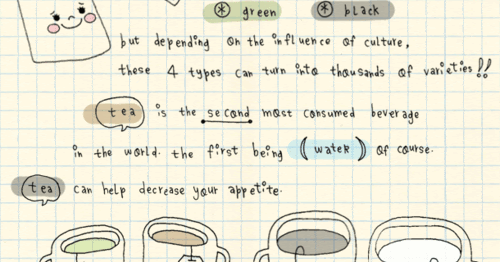 ⊛ green ⊛ black
but depending on the influence of culture,
these 4 types can turn into thousands of varieties!!
tea is the second most consumed beverage
in the world. the first being (water) of course.
tea can help decrease your appetite.